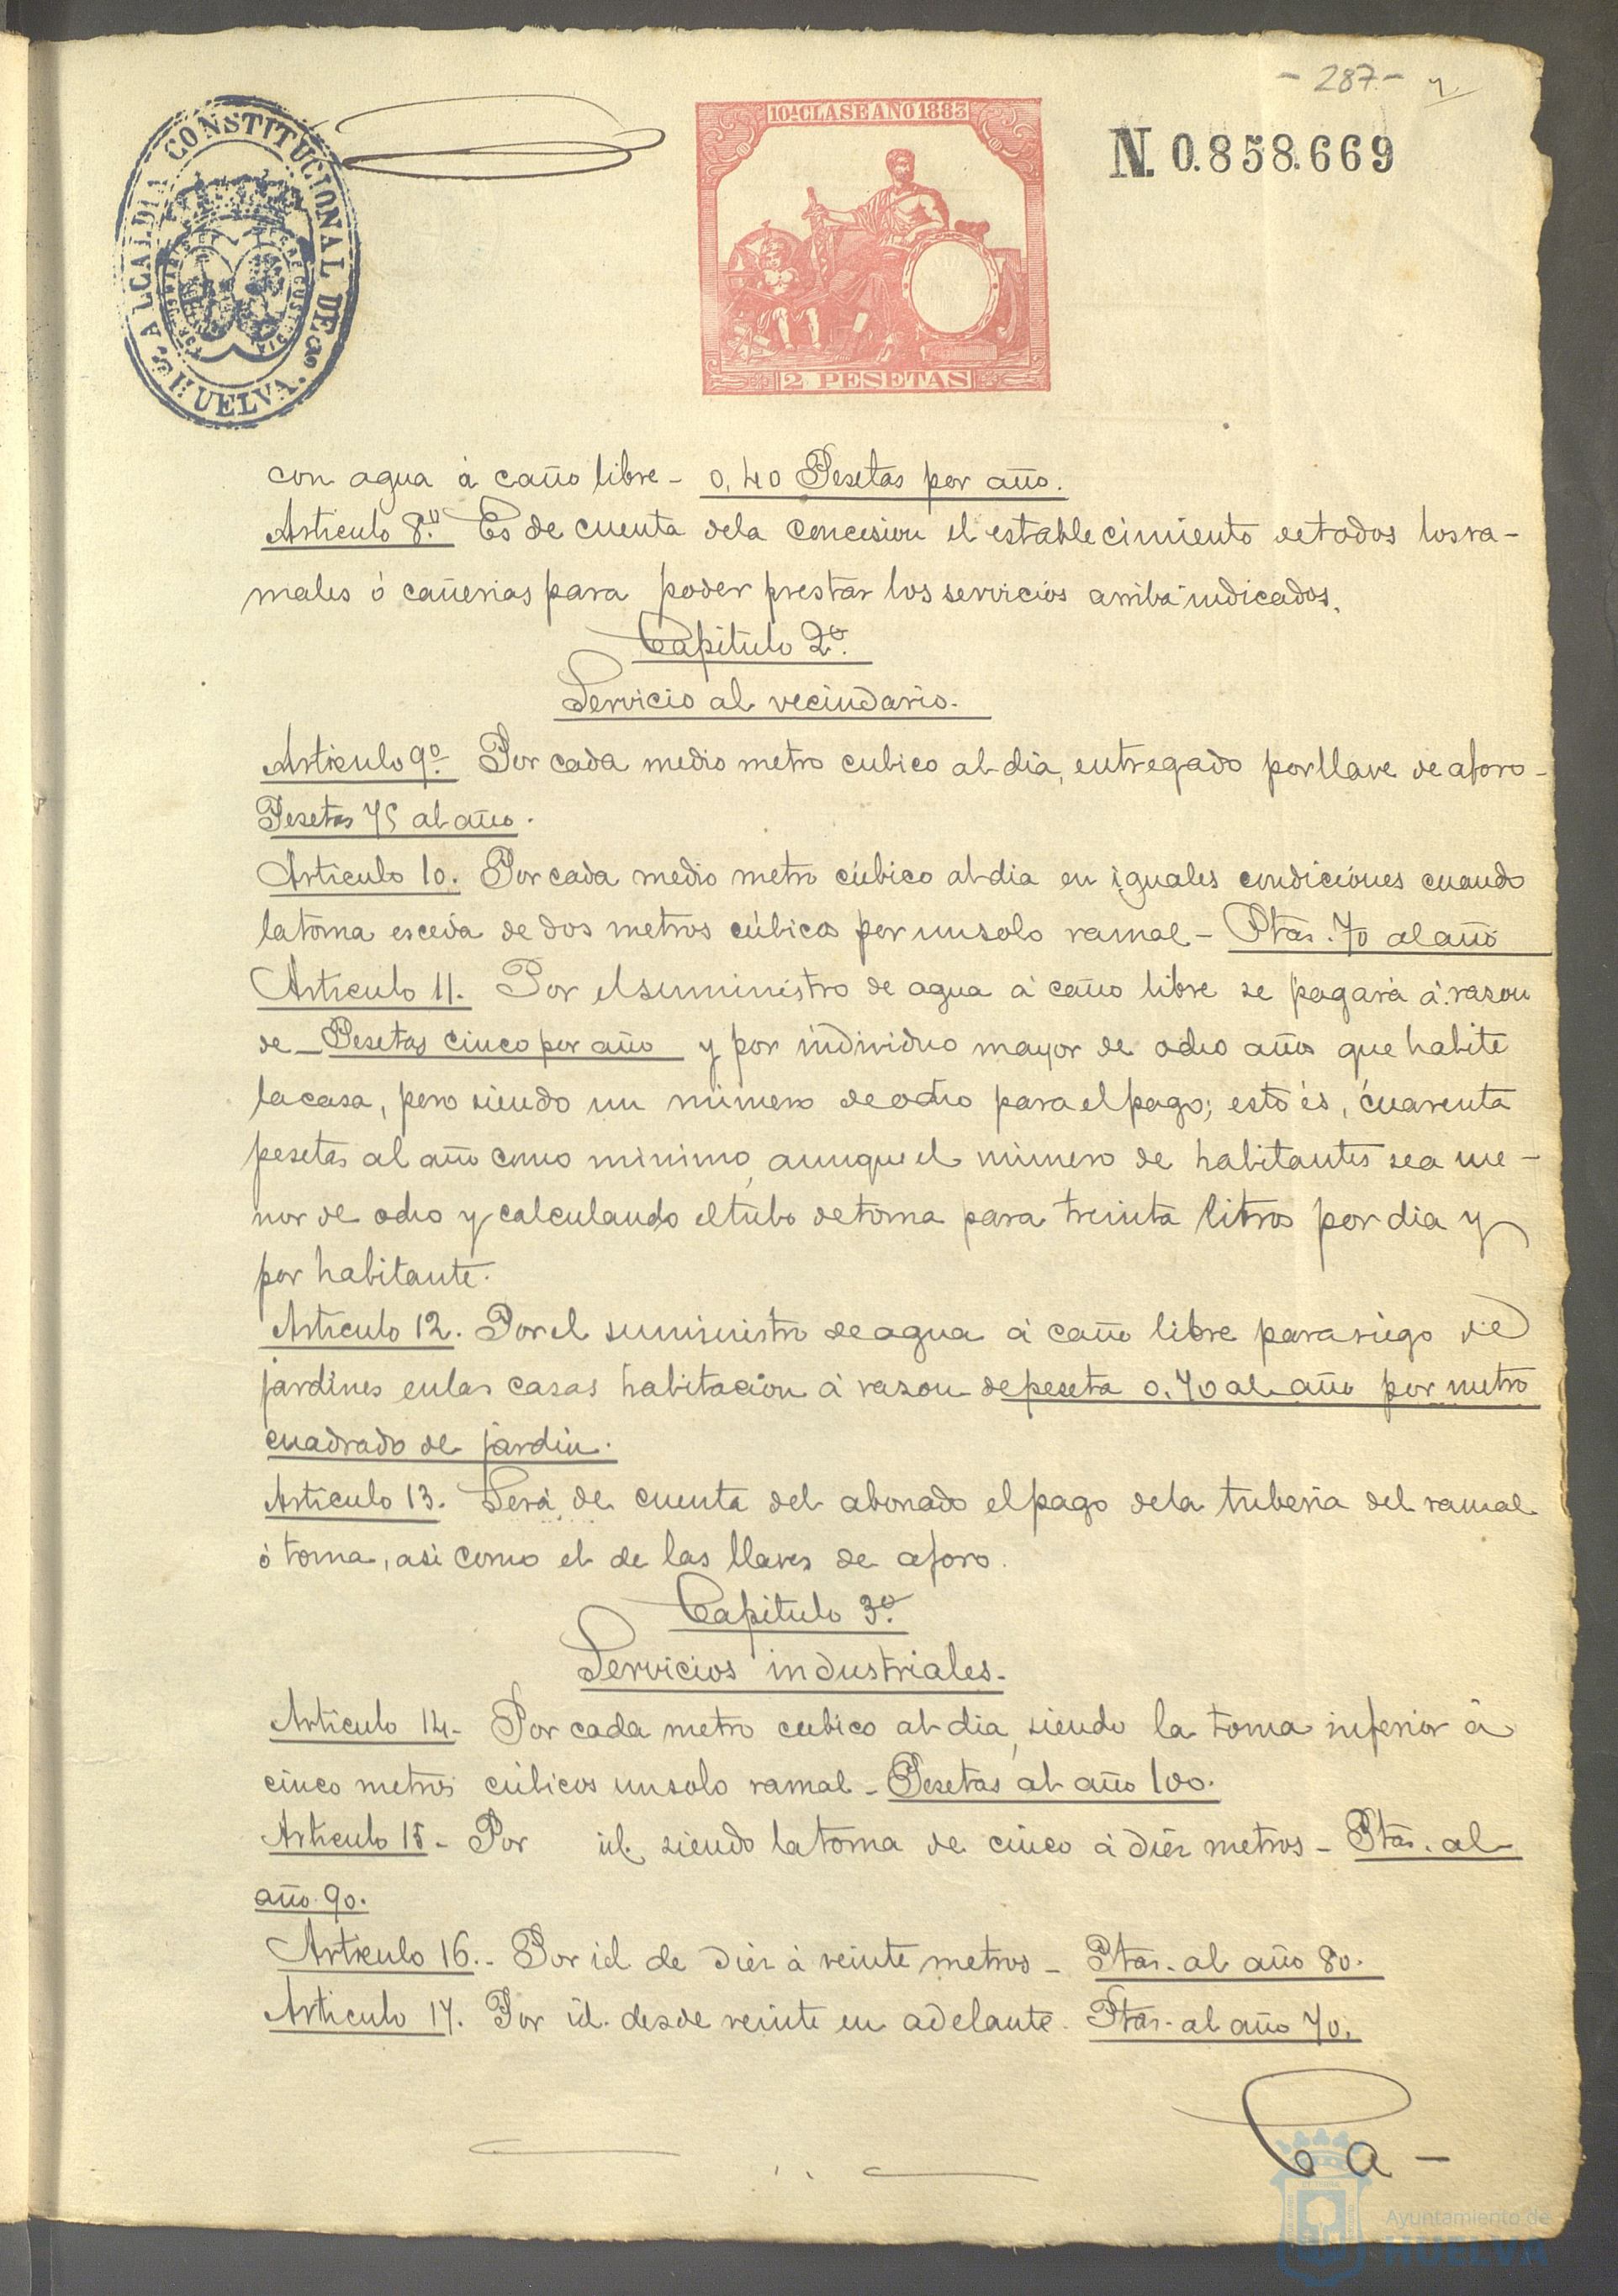 - 287 -
ALCALDIA CONSTITUCIONAL DE HUELVA.
10ª CLASE AÑO 1883
2 PESETAS
N. 0.858.669
con agua á caño libre - 0,40 Pesetas por año.
Articulo 8.º Es de cuenta de la concesion el establecimiento de todos los ra-
males ó cañerias para poder prestar los servicios arriba indicados.
Capitulo 2º.
Servicio al vecindario.
Articulo 9º. Por cada medio metro cubico al dia, entregado por llave de aforo -
Pesetas 75 al año.
Articulo 10. Por cada medio metro cúbico al dia en iguales condiciones cuando
la toma esceda de dos metros cúbicos por un solo ramal - Ptas. 70 al año
Articulo 11. Por el suministro de agua á caño libre se pagará á razon
de - Pesetas cinco por año y por individuo mayor de ocho años que habite
la casa, pero siendo un número de ocho para el pago; esto és, cuarenta
pesetas al año como minimo, aunque el número de habitantes sea me-
nor de ocho y calculando el tubo de toma para treinta litros por dia y
por habitante.
Articulo 12. Por el suministro de agua á caño libre para riego de
jardines en las casas habitacion á razon de peseta 0,70 al año por metro
cuadrado de jardin.
Articulo 13. Será de cuenta del abonado el pago de la tuberia del ramal
ó toma, asi como el de las llaves de aforo.
Capitulo 3º.
Servicios industriales.
Articulo 14- Por cada metro cubico al dia, siendo la toma inferior á
cinco metros cúbicos un solo ramal - Pesetas al año 100.
Articulo 15 - Por id. siendo la toma de cinco á diez metros - Ptas. al
año 90.
Articulo 16. - Por id de diez á veinte metros - Ptas. al año 80.
Articulo 17. Por id. desde veinte en adelante. Ptas. al año 70.
Ca -
Ayuntamiento de
HUELVA